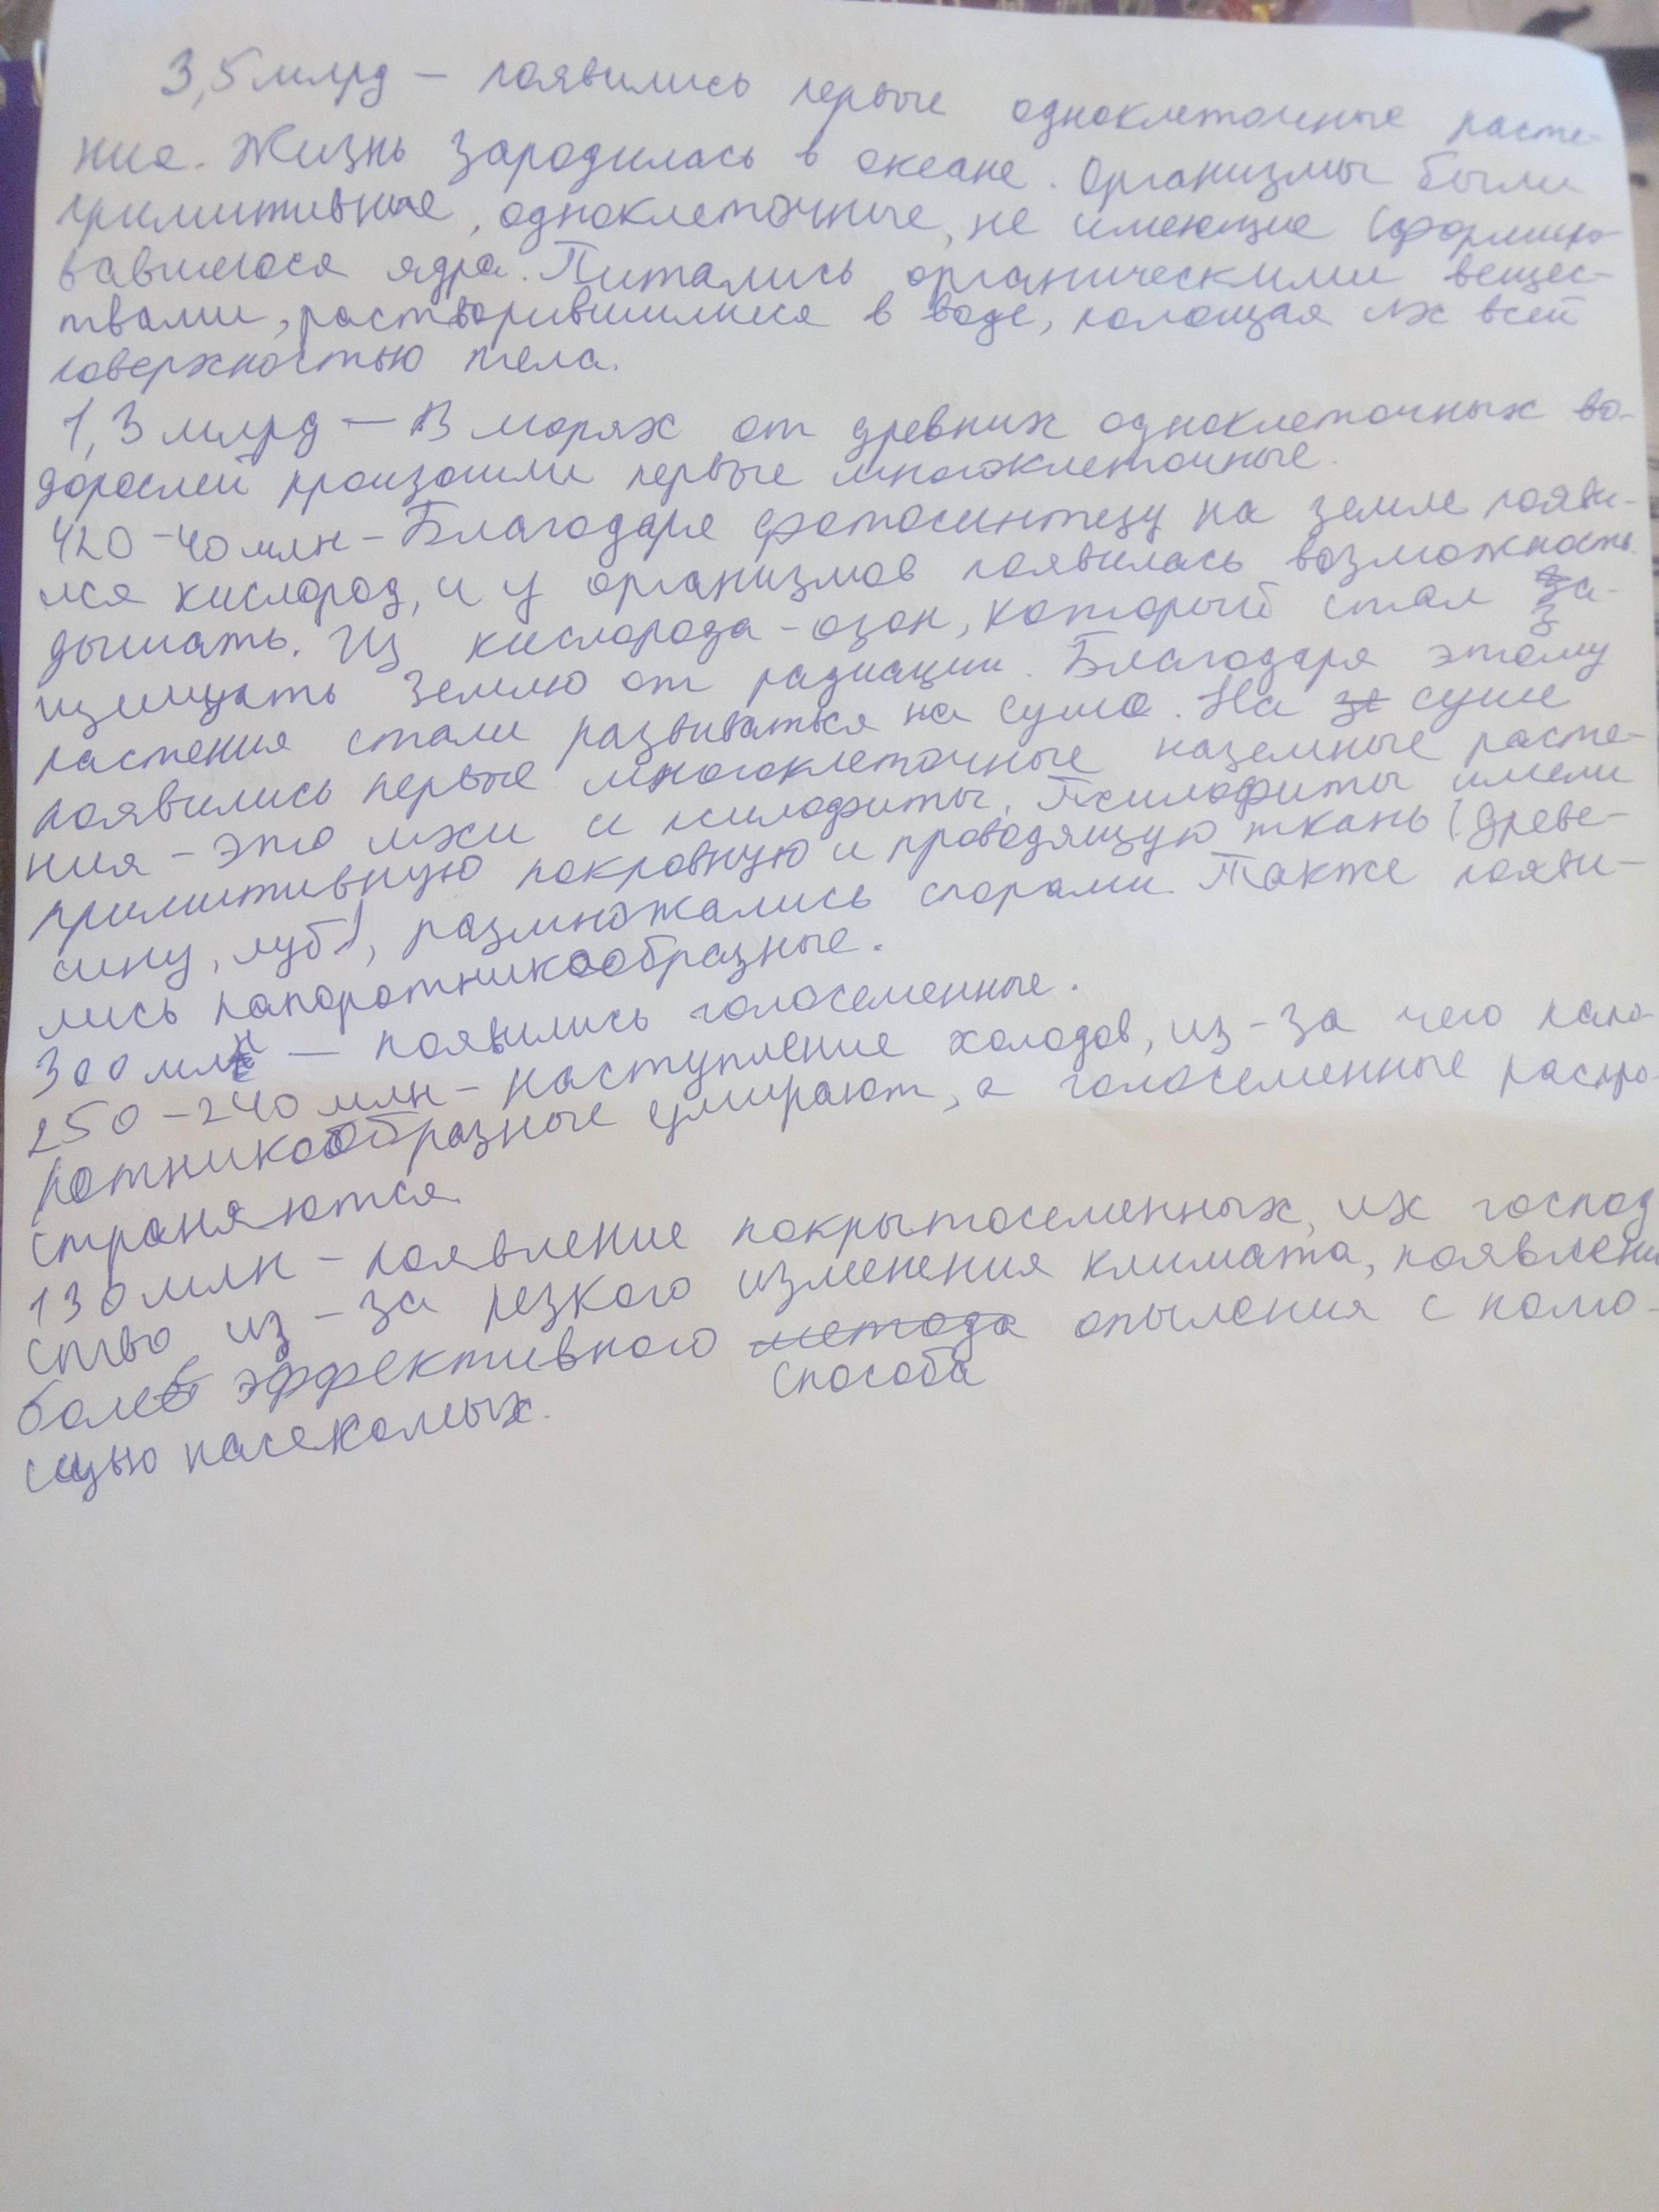 3,5 млрд — появились первые одноклеточные расте-
ние. Жизнь зародилась в океане. Организмы были
примитивные, одноклеточные, не имеющие сформиро-
вавшегося ядра. Питались органическими вещес-
твами, растворившимися в воде, поглощая их всей
поверхностью тела.
1,3 млрд — В морях от древних одноклеточных во-
дорослей произошли первые многоклеточные.
420-40 млн - Благодаря фотосинтезу на земле появи-
лся кислород, и у организмов появилась возможность
дышать. Из кислорода - озон, который стал за-
щищать Землю от радиации. Благодаря этому
растения стали развиваться на суше. На суше
появились первые многоклеточные наземные расте-
ния - это мхи и псилофиты. Псилофиты имели
примитивную покровную и проводящую ткань (древе-
сину, луб), размножались спорами. Также появи-
лись папоротникообразные.
300 млн — появились голосеменные.
250-240 млн - наступление холодов, из-за чего папо-
ротникообразные умирают, а голосеменные распро-
страняются.
130 млн - появление покрытосеменных, их господ
ство из-за резкого изменения климата, появлени
более эффективного способа опыления с помо-
щью насекомых.